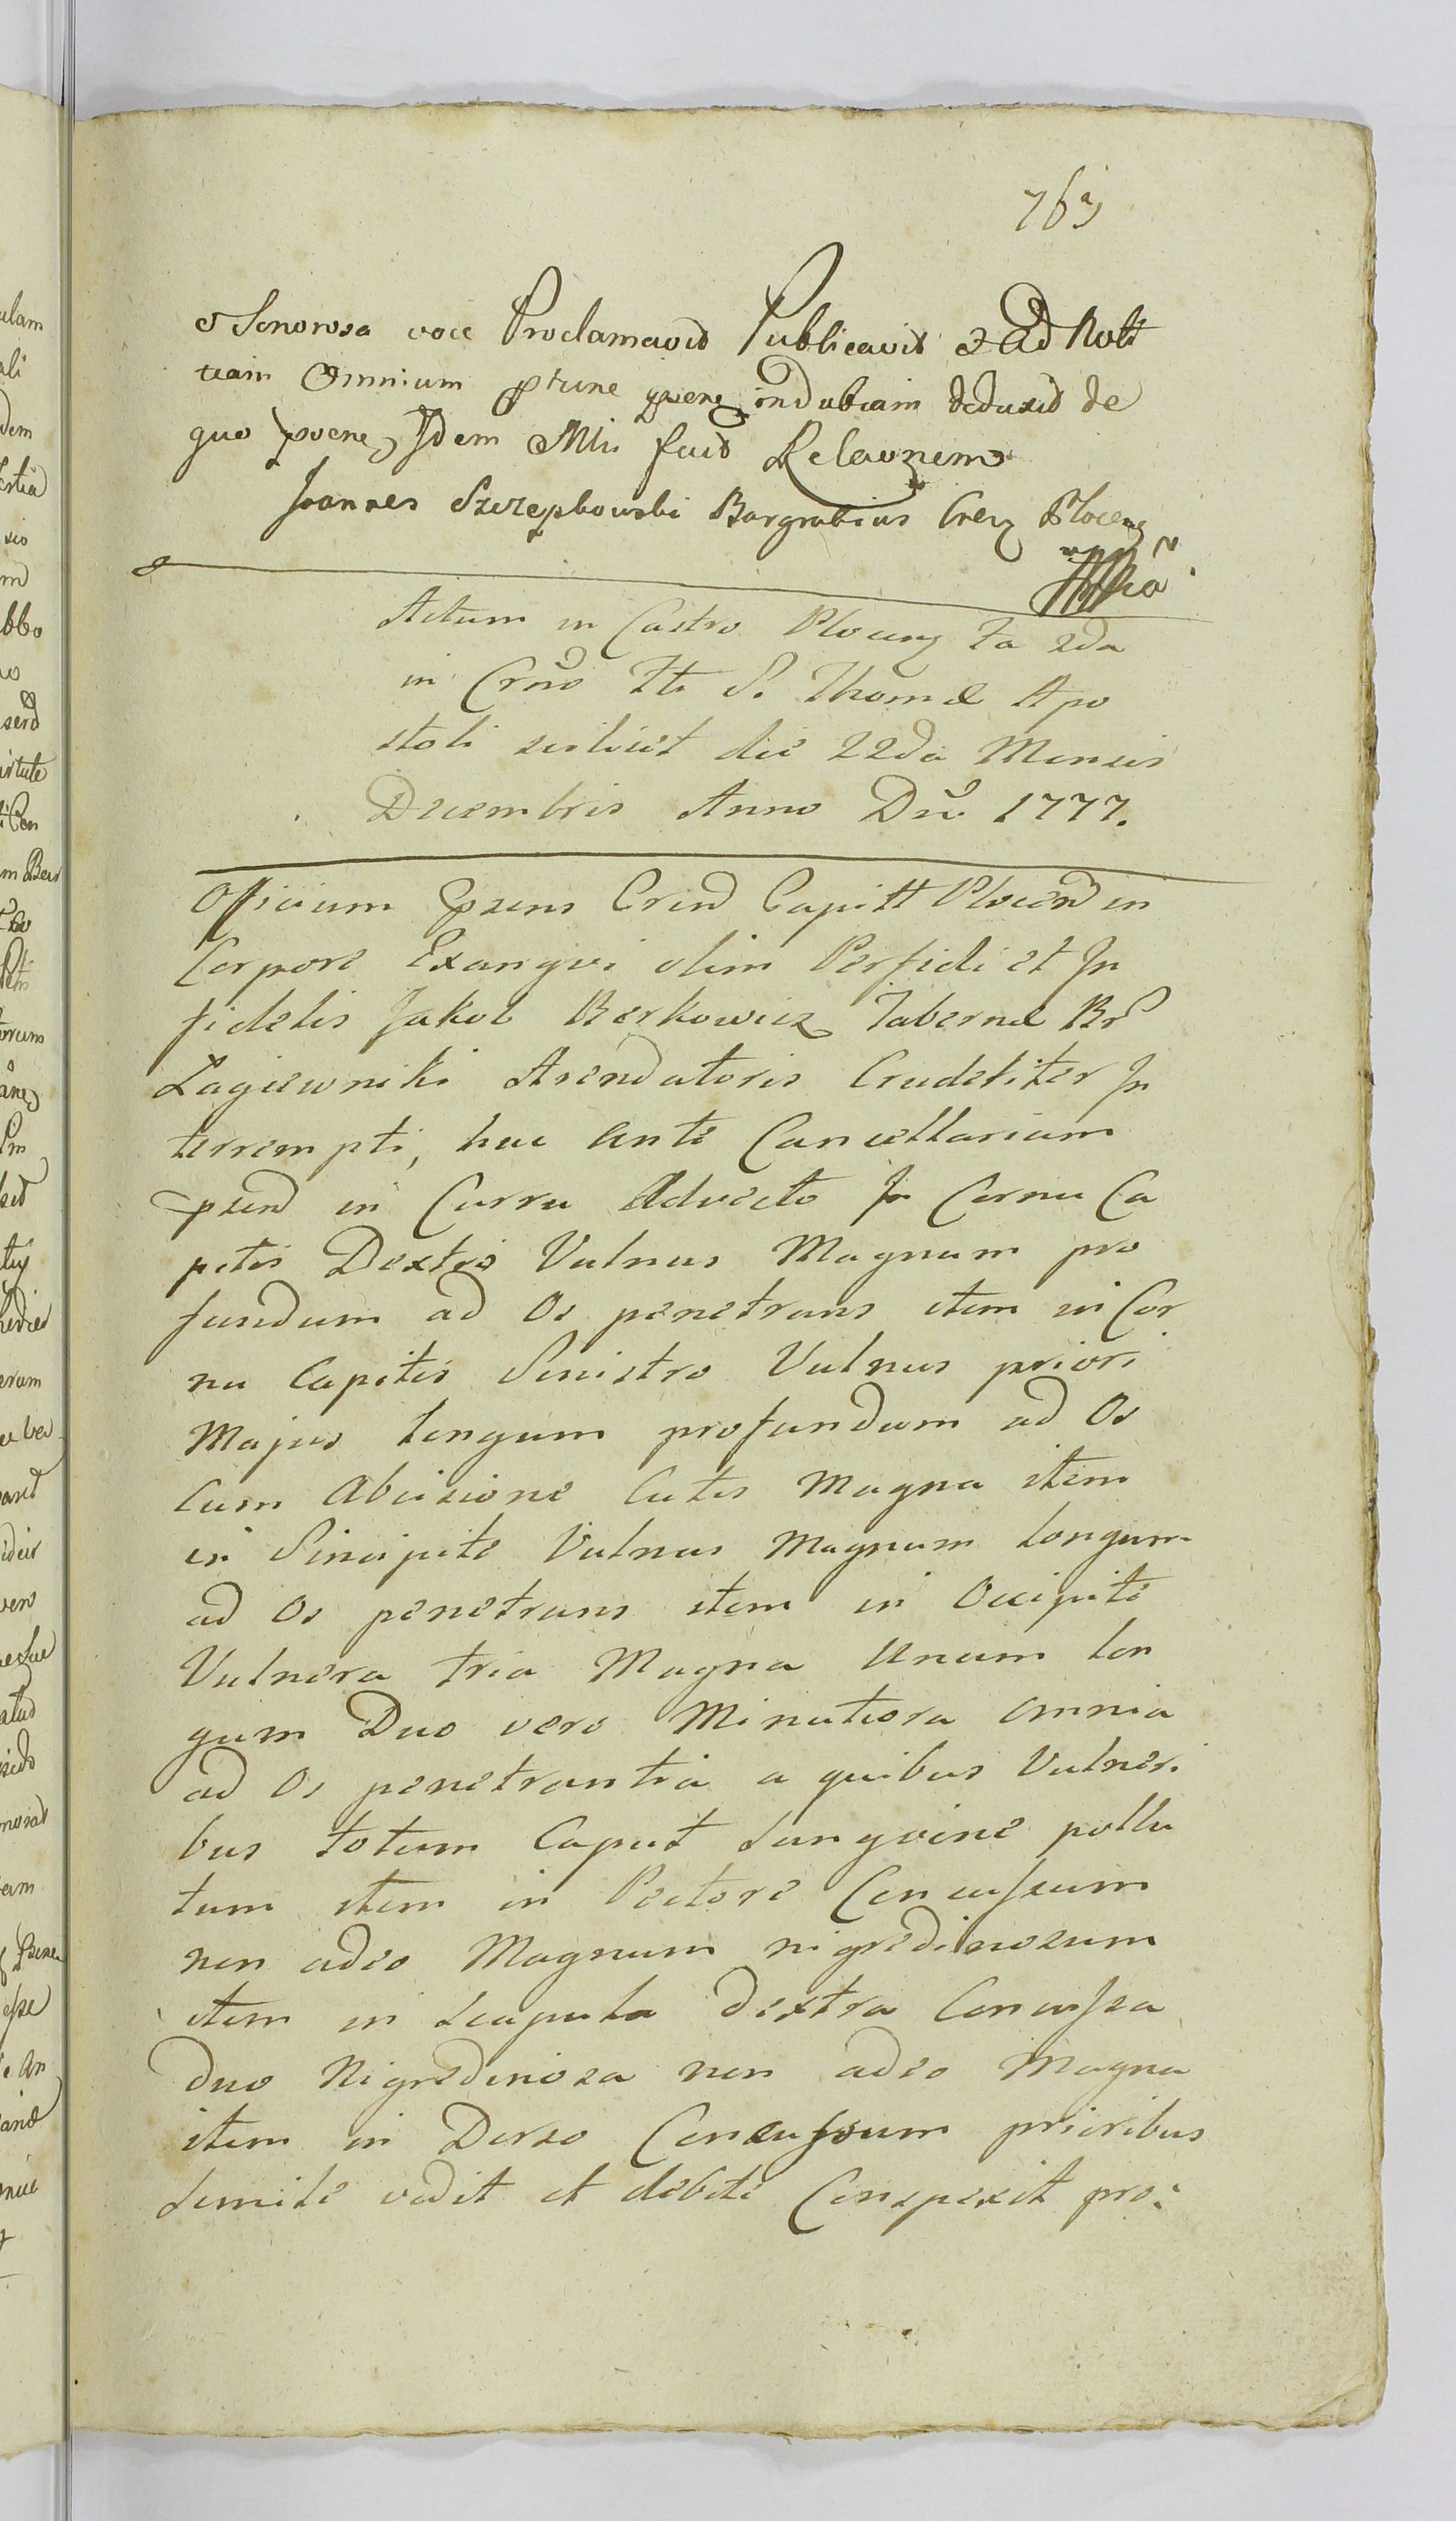 763
& Sonorosa voce Proclamavit Publicavit & Ad Noti
tiam Omnium ptune indubiam deduxit de
quo Idem Mtri fecit Relaonem
Joannes Szczepkowski Burgrabius Cren Plocen
mpp
Actum in Castro Plocen fa 2da
in Crno fti S. Thomæ Apo
stoli scilicet die 22da Mensis
Decembris Anno Dni 1777.
Officium psens Crend Capitt Plocen in
Corpore Exangvi olim Perfidi et In
fidelis Jakob Berkowicz Tabernæ Br
Lagiewniki Arendatoris Crudeliter In
terrempti, huc ante Cancellariam
psend in Curru Advecto In Cornu Ca
pitis Dextro Vulnus Magnum pro
fundum ad Os penetrans item in Cor
nu Capitis Sinistro Vulnus priori
Majus longum profundum ad Os
Cum Abscisione Cutis Magna item
in Sincipite Vulnus Magnum longum
ad Os penetrans item in Occipite
Vulnera tria Magna Unum lon
gum Duo vero Minutiora Omnia
ad Os penetrantia a quibus Vulneri
bus totum Caput Sangvine pollu
tum item in Pectore Concussum
non adeo Magnum nigredinosum
item in Scapula dextra Concussa
duo Nigredinosa non adeo Magna
item in Dorso Concussum prioribus
Simile vidit et debite Conspexit pro: